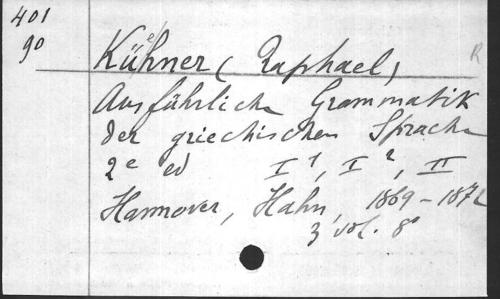 401
90
Kühner (Raphael)
R
Ausführliche Grammatik
der griechischen Sprache
2e ed I 1, I 2, II
Hannover, Hahn, 1869-1872
3 vol. 8°